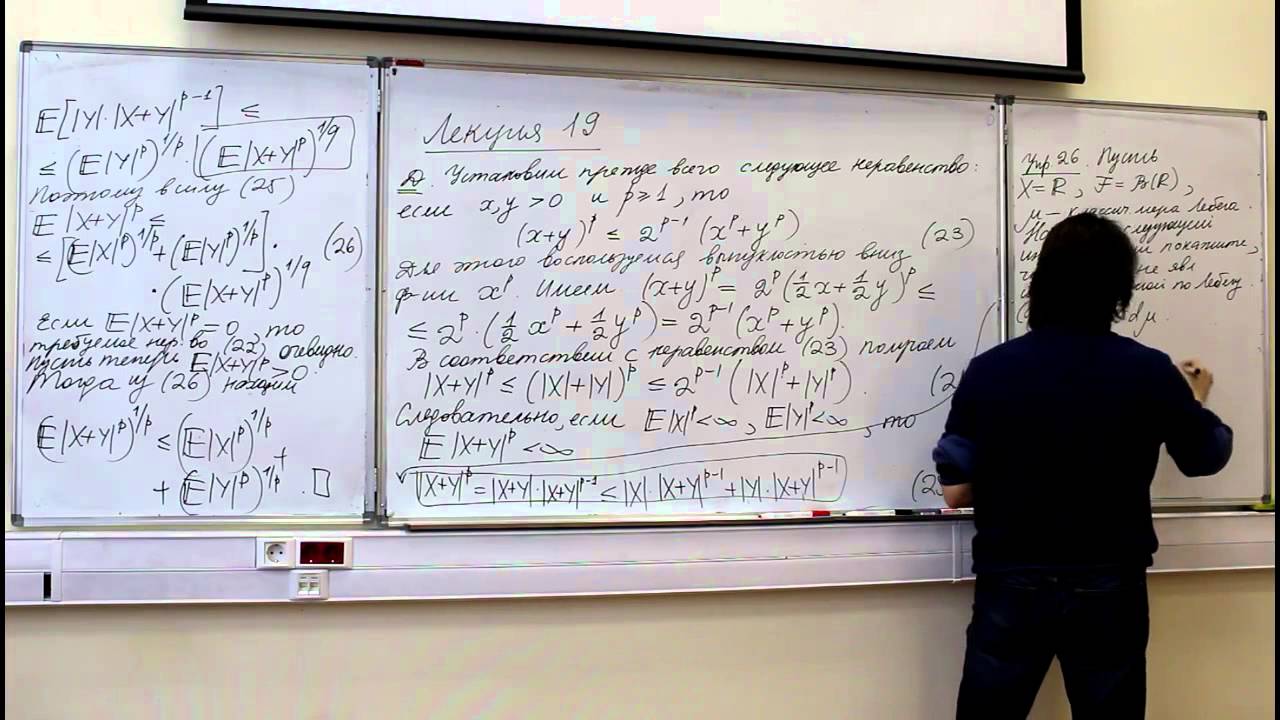 E[|Y|·|X+Y|^{p-1}] ≤
≤ (E|Y|^p)^{1/p} · (E|X+Y|^p)^{1/q}
Поэтому в силу (25)
E|X+Y|^p ≤
≤ [(E|X|^p)^{1/p} + (E|Y|^p)^{1/p}] · (26)
· (E|X+Y|^p)^{1/q}
Если E|X+Y|^p = 0, то
требуемое нер-во (22) очевидно.
Пусть теперь E|X+Y|^p > 0.
Тогда из (26) находим
(E|X+Y|^p)^{1/p} ≤ (E|X|^p)^{1/p} +
+ (E|Y|^p)^{1/p}. □
Лекция 19
Д. Установим прежде всего следующее неравенство:
если x,y > 0 и p ≥ 1, то
(x+y)^p ≤ 2^{p-1} (x^p + y^p) (23)
Для этого воспользуемся выпуклостью вниз
ф-ии x^p. Имеем (x+y)^p = 2^p (½x + ½y)^p ≤
≤ 2^p · (½x^p + ½y^p) = 2^{p-1} (x^p + y^p).
В соответствии с неравенством (23) получаем
|X+Y|^p ≤ (|X|+|Y|)^p ≤ 2^{p-1} (|X|^p + |Y|^p). (2
Следовательно, если E|X|^p < ∞, E|Y|^p < ∞, то
E|X+Y|^p < ∞
|X+Y|^p = |X+Y|·|X+Y|^{p-1} ≤ |X|·|X+Y|^{p-1} + |Y|·|X+Y|^{p-1} (2
Упр. 26. Пусть
X = R, F = B(R),
μ – классич. мера Лебега.
следующий
покажите,
не явл
по Лебегу.
dμ